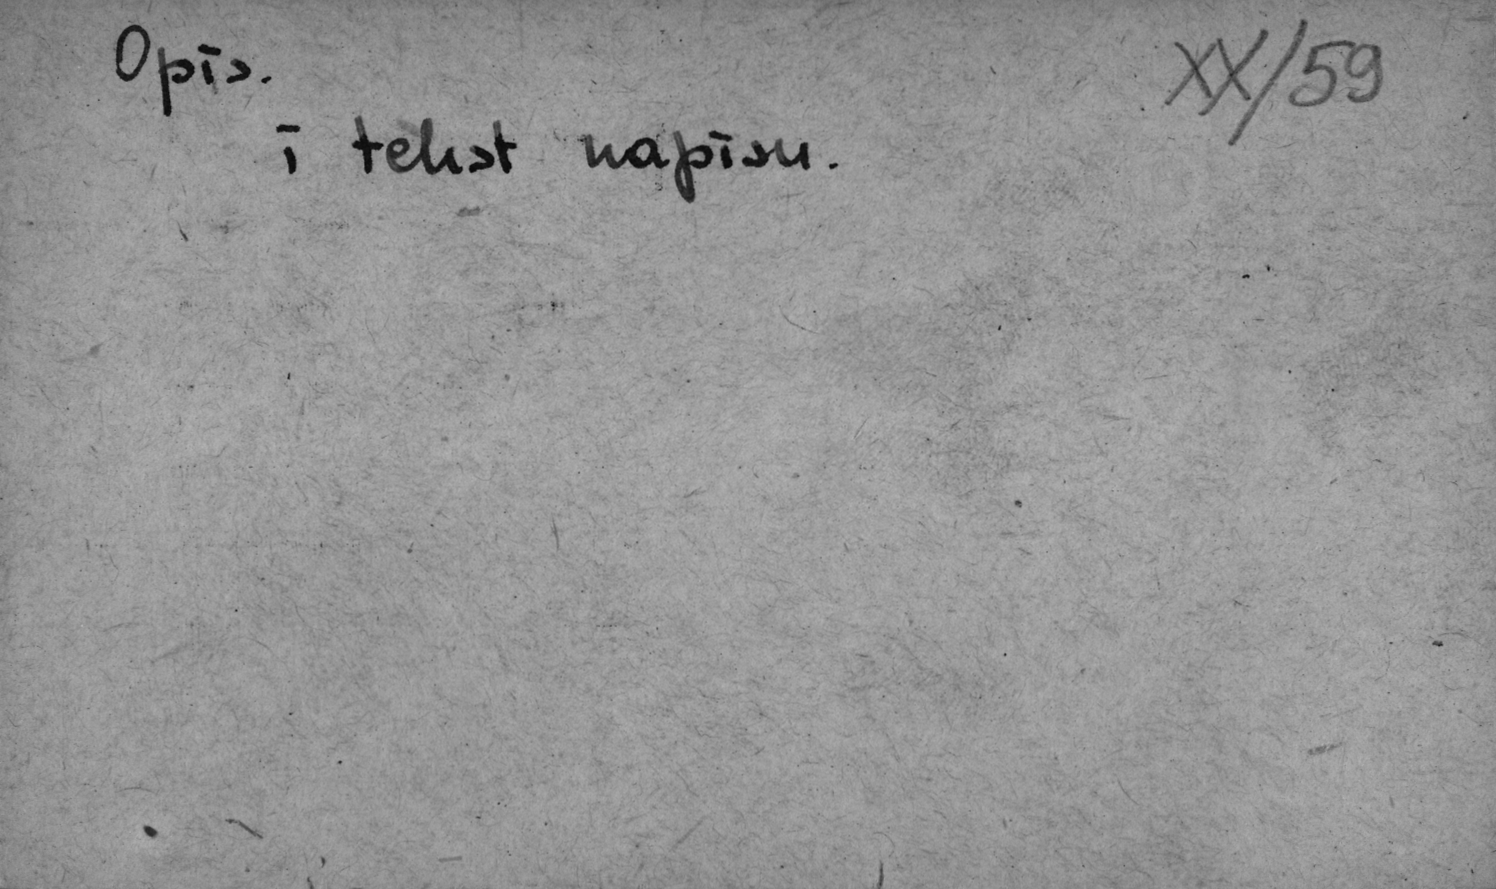 Opis.
XX/59
i tekst napisu.